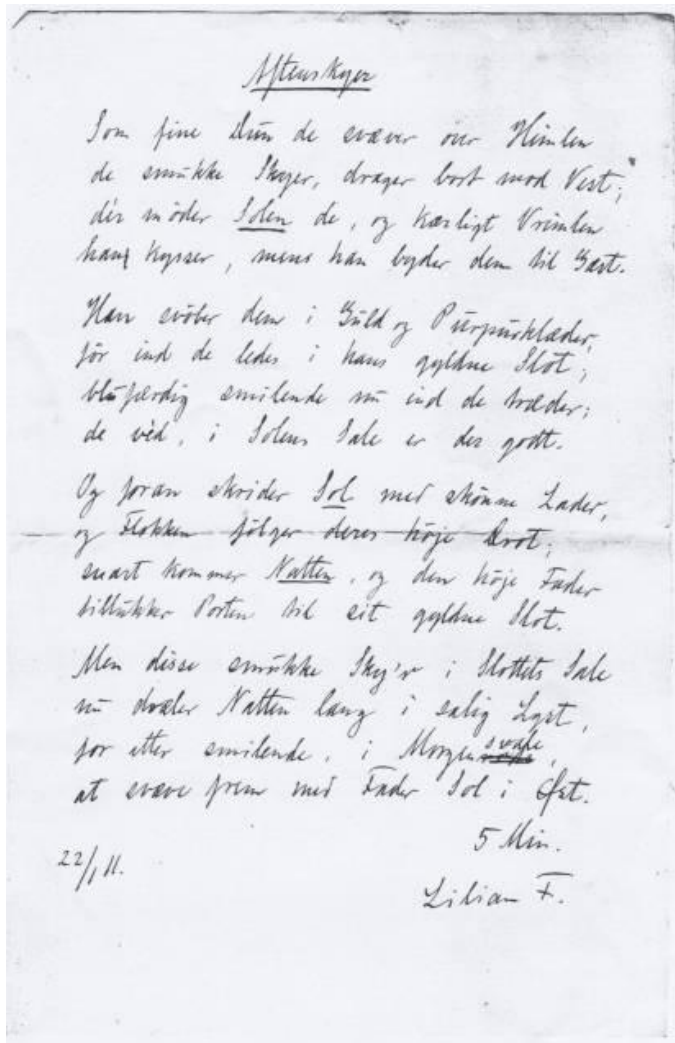 Aftenskyer
Som fine Dun de svæver over Himlen
de smukke Skyer, drager bort mod Vest;
dér möder Solen de, og kærligt Vrimlen
han kysser, mens han byder dem til Gæst.
Han svöber dem i Guld og Purpurklæder,
för ind de ledes i hans gyldne Slot;
blufærdig smilende nu ind de træder;
de véd, i Solens Sale er der godt.
Og foran skrider Sol med skönne Lader,
og Flokken fölger deres höje Drot;
snart kommer Natten, og den höje Fader
tillukker Porten til sit gyldne Slot.
Men disse smukke Sky'r i Slottets Sale
nu dvæler Natten lang i salig Lyst,
for atter smilende, i Morgensvale,
at svæve frem med Fader Sol i Øst.
5 Min.
22/1 11.
Lilian F.